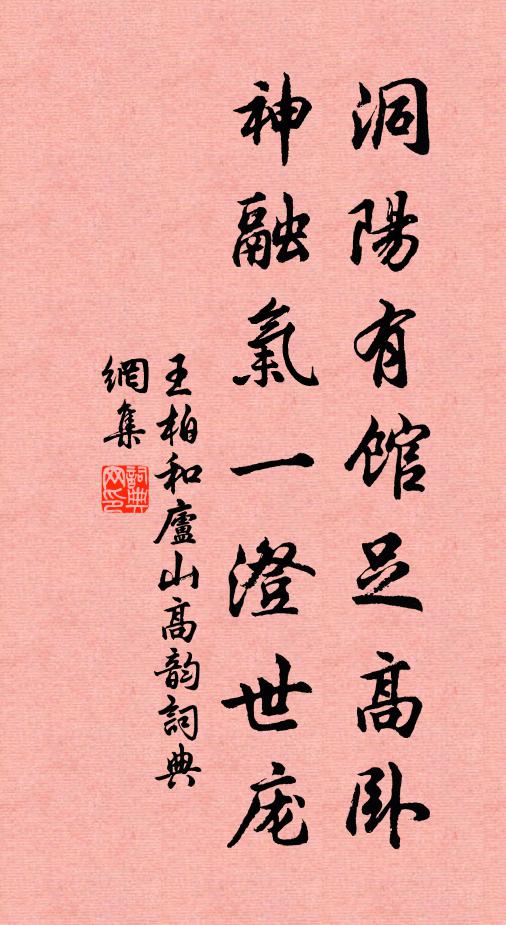 洞陽有館足高卧
神融氣一澄世庬
王柏和廬山高韵詞典
網集
詞典網印